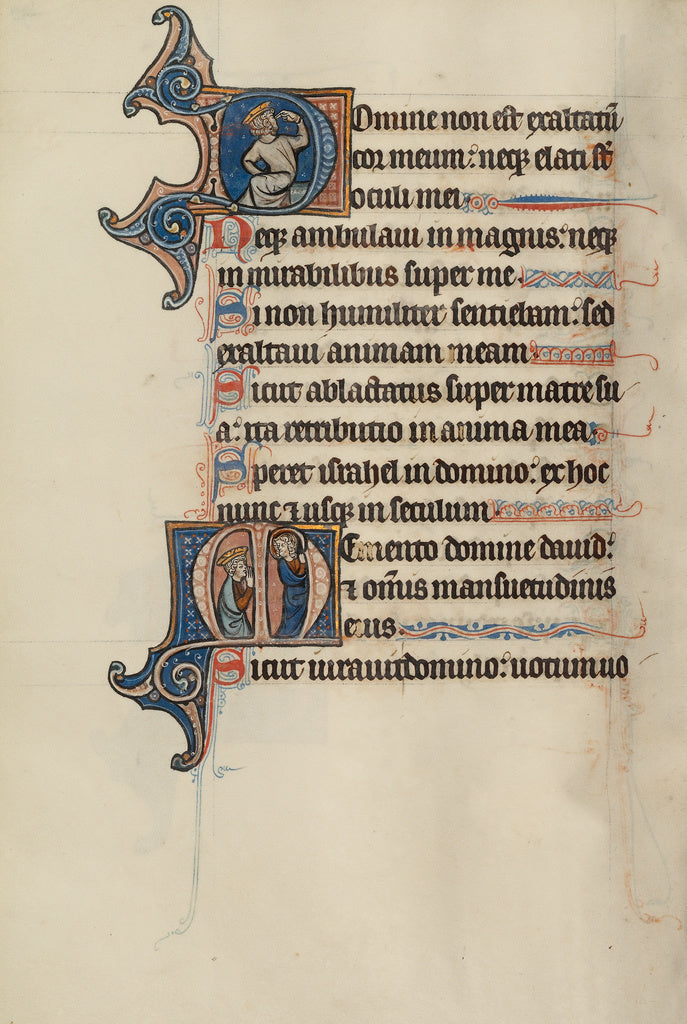 Domine non est exaltatū
cor meum: neqꝫ elati sт̄
oculi mei
Neqꝫ ambulaui in magnis: neqꝫ
in mirabilibus super me.
Si non humiliter sentiebam: sed
exaltaui animam meam
Sicut ablactatus super matre su
a: ita retributio in anima mea.
Speret israhel in domino: ex hoc
nunc ⁊ usqꝫ in seculum.
Memento domine dauid:
⁊ om̄is mansuetudinis
eius.
Sicut iurauit domino: uotum uo